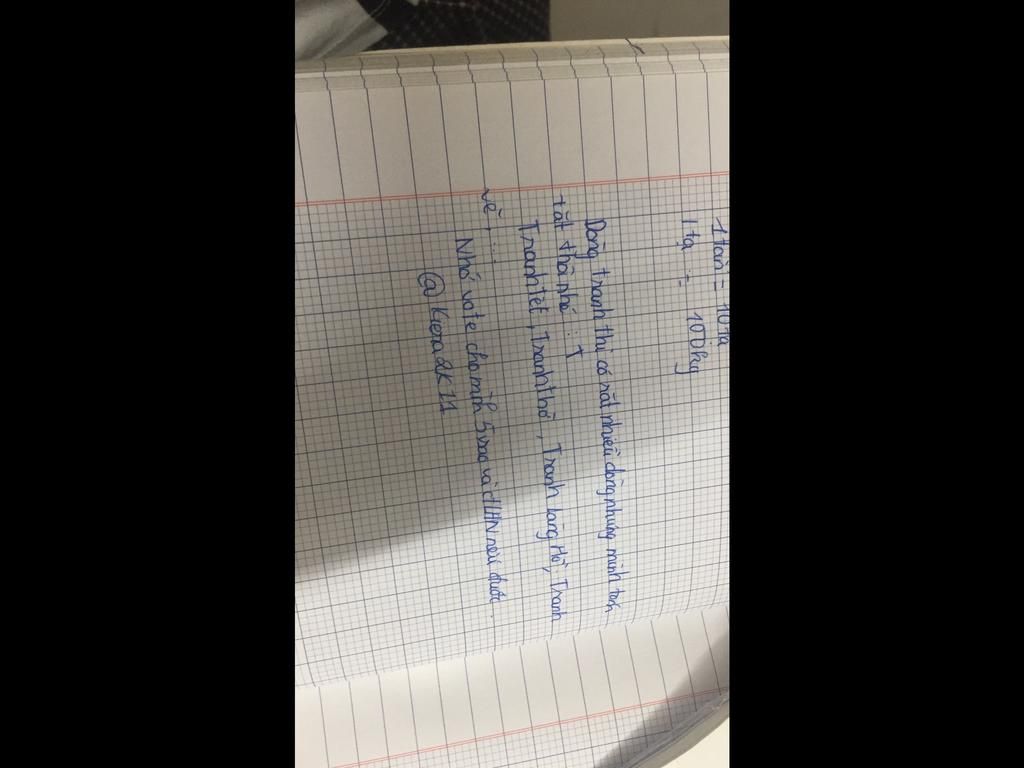 1 tấn = 10 tạ
1 tạ = 100kg
Dòng tranh thì có rất nhiều dòng nhưng mình tóm
tắt thôi nhé : ↑
Tranh tết, Tranh thờ, Tranh làng Hồ, Tranh
vẽ, ...
Nhớ vote cho mình 5 sao và ctlHN nếu được.
@Kiera2k11